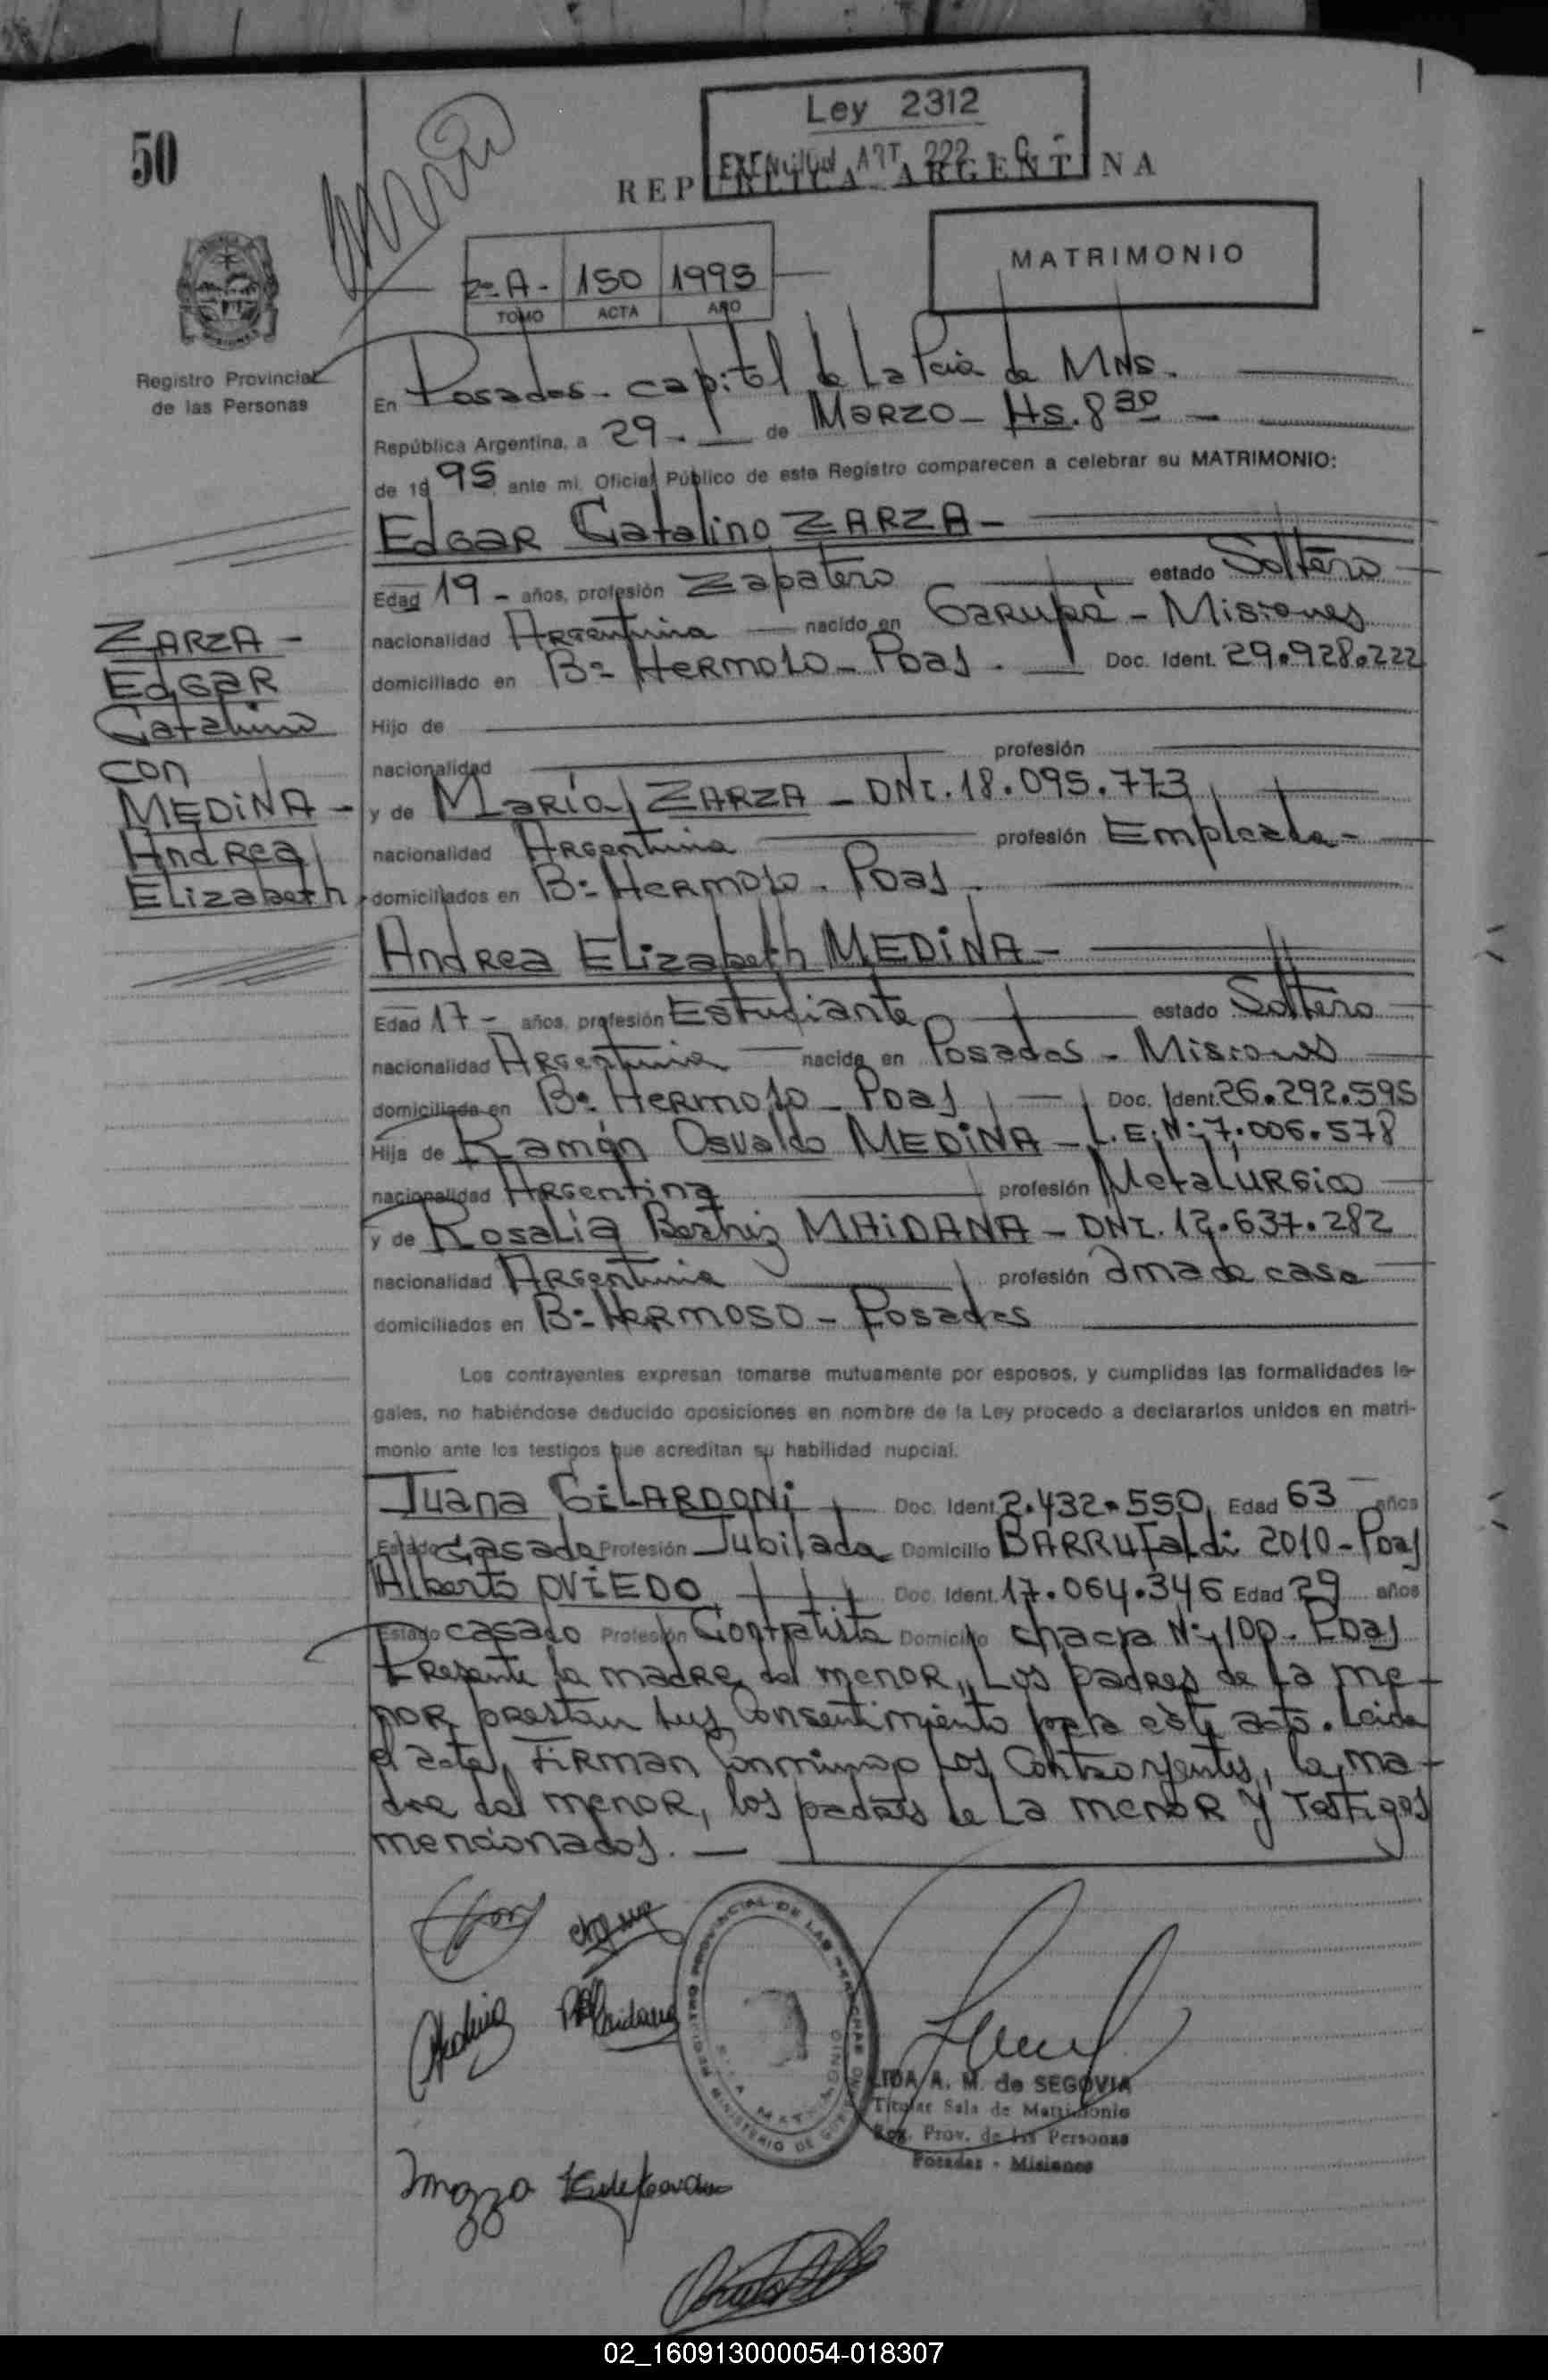 50
Ley 2312
EXENCION ART 222
REPUBLICA ARGENTINA
MATRIMONIO
2º A - 150 1995
TOMO ACTA AÑO
Registro Provincial
de las Personas
En Posadas - capital de La Pcia de MNS.
República Argentina, a 29 - de Marzo - Hs. 8 30 -
de 19 95, ante mi, Oficial Público de este Registro comparecen a celebrar su MATRIMONIO:
Edgar Catalino ZARZA -
Edad 19 - años, profesión Zapatero estado Soltero
nacionalidad Argentina nacido en Garupá - Misiones
domiciliado en Bº Hermoso - Pdas. Doc. Ident. 29.928.222
Hijo de
nacionalidad profesión
y de María ZARZA - DNI. 18.095.773
nacionalidad Argentina profesión Empleada -
domiciliados en Bº Hermoso. Pdas.
ZARZA -
Edgar
Catalino
con
MEDINA -
Andrea
Elizabeth
Andrea Elizabeth MEDINA -
Edad 17 - años, profesión Estudiante estado Soltera
nacionalidad Argentina nacida en Posadas - Misiones
domiciliada en Bº Hermoso - Pdas Doc. Ident. 26.292.595
Hija de Ramón Osvaldo MEDINA - L.E. Nº 7.006.578
nacionalidad Argentina profesión Metalúrgico
y de Rosalia Beatriz MAIDANA - DNI. 12.637.282
nacionalidad Argentina profesión ama de casa
domiciliados en Bº Hermoso - Posadas
Los contrayentes expresan tomarse mutuamente por esposos, y cumplidas las formalidades le-
gales, no habiéndose deducido oposiciones en nombre de la Ley procedo a declararlos unidos en matri-
monio ante los testigos que acreditan su habilidad nupcial.
Juana GILARDONI Doc. Ident. 2.432.550 Edad 63 años
Estado Casada Profesión Jubilada Domicilio BARRUFaldi 2010 - Pdas
Alberto OVIEDO Doc. Ident. 17.064.346 Edad 29 años
Estado casado Profesión Contratista Domicilio chacra Nº 100 - Pdas
Presente la madre del menor, Los padres de La me-
nor prestan sus consentimiento para este acto. Leida
el acta, Firman conmigo Los Contrayentes, la ma-
dre del menor, los padres de La menor y Testigos
mencionados. -
REGISTRO PROVINCIAL DE LAS PERSONAS
MINISTERIO DE GOBIERNO
LIDA A. M. de SEGOVIA
Titular Sala de Matrimonio
Reg. Prov. de las Personas
Posadas - Misiones
02_160913000054-018307